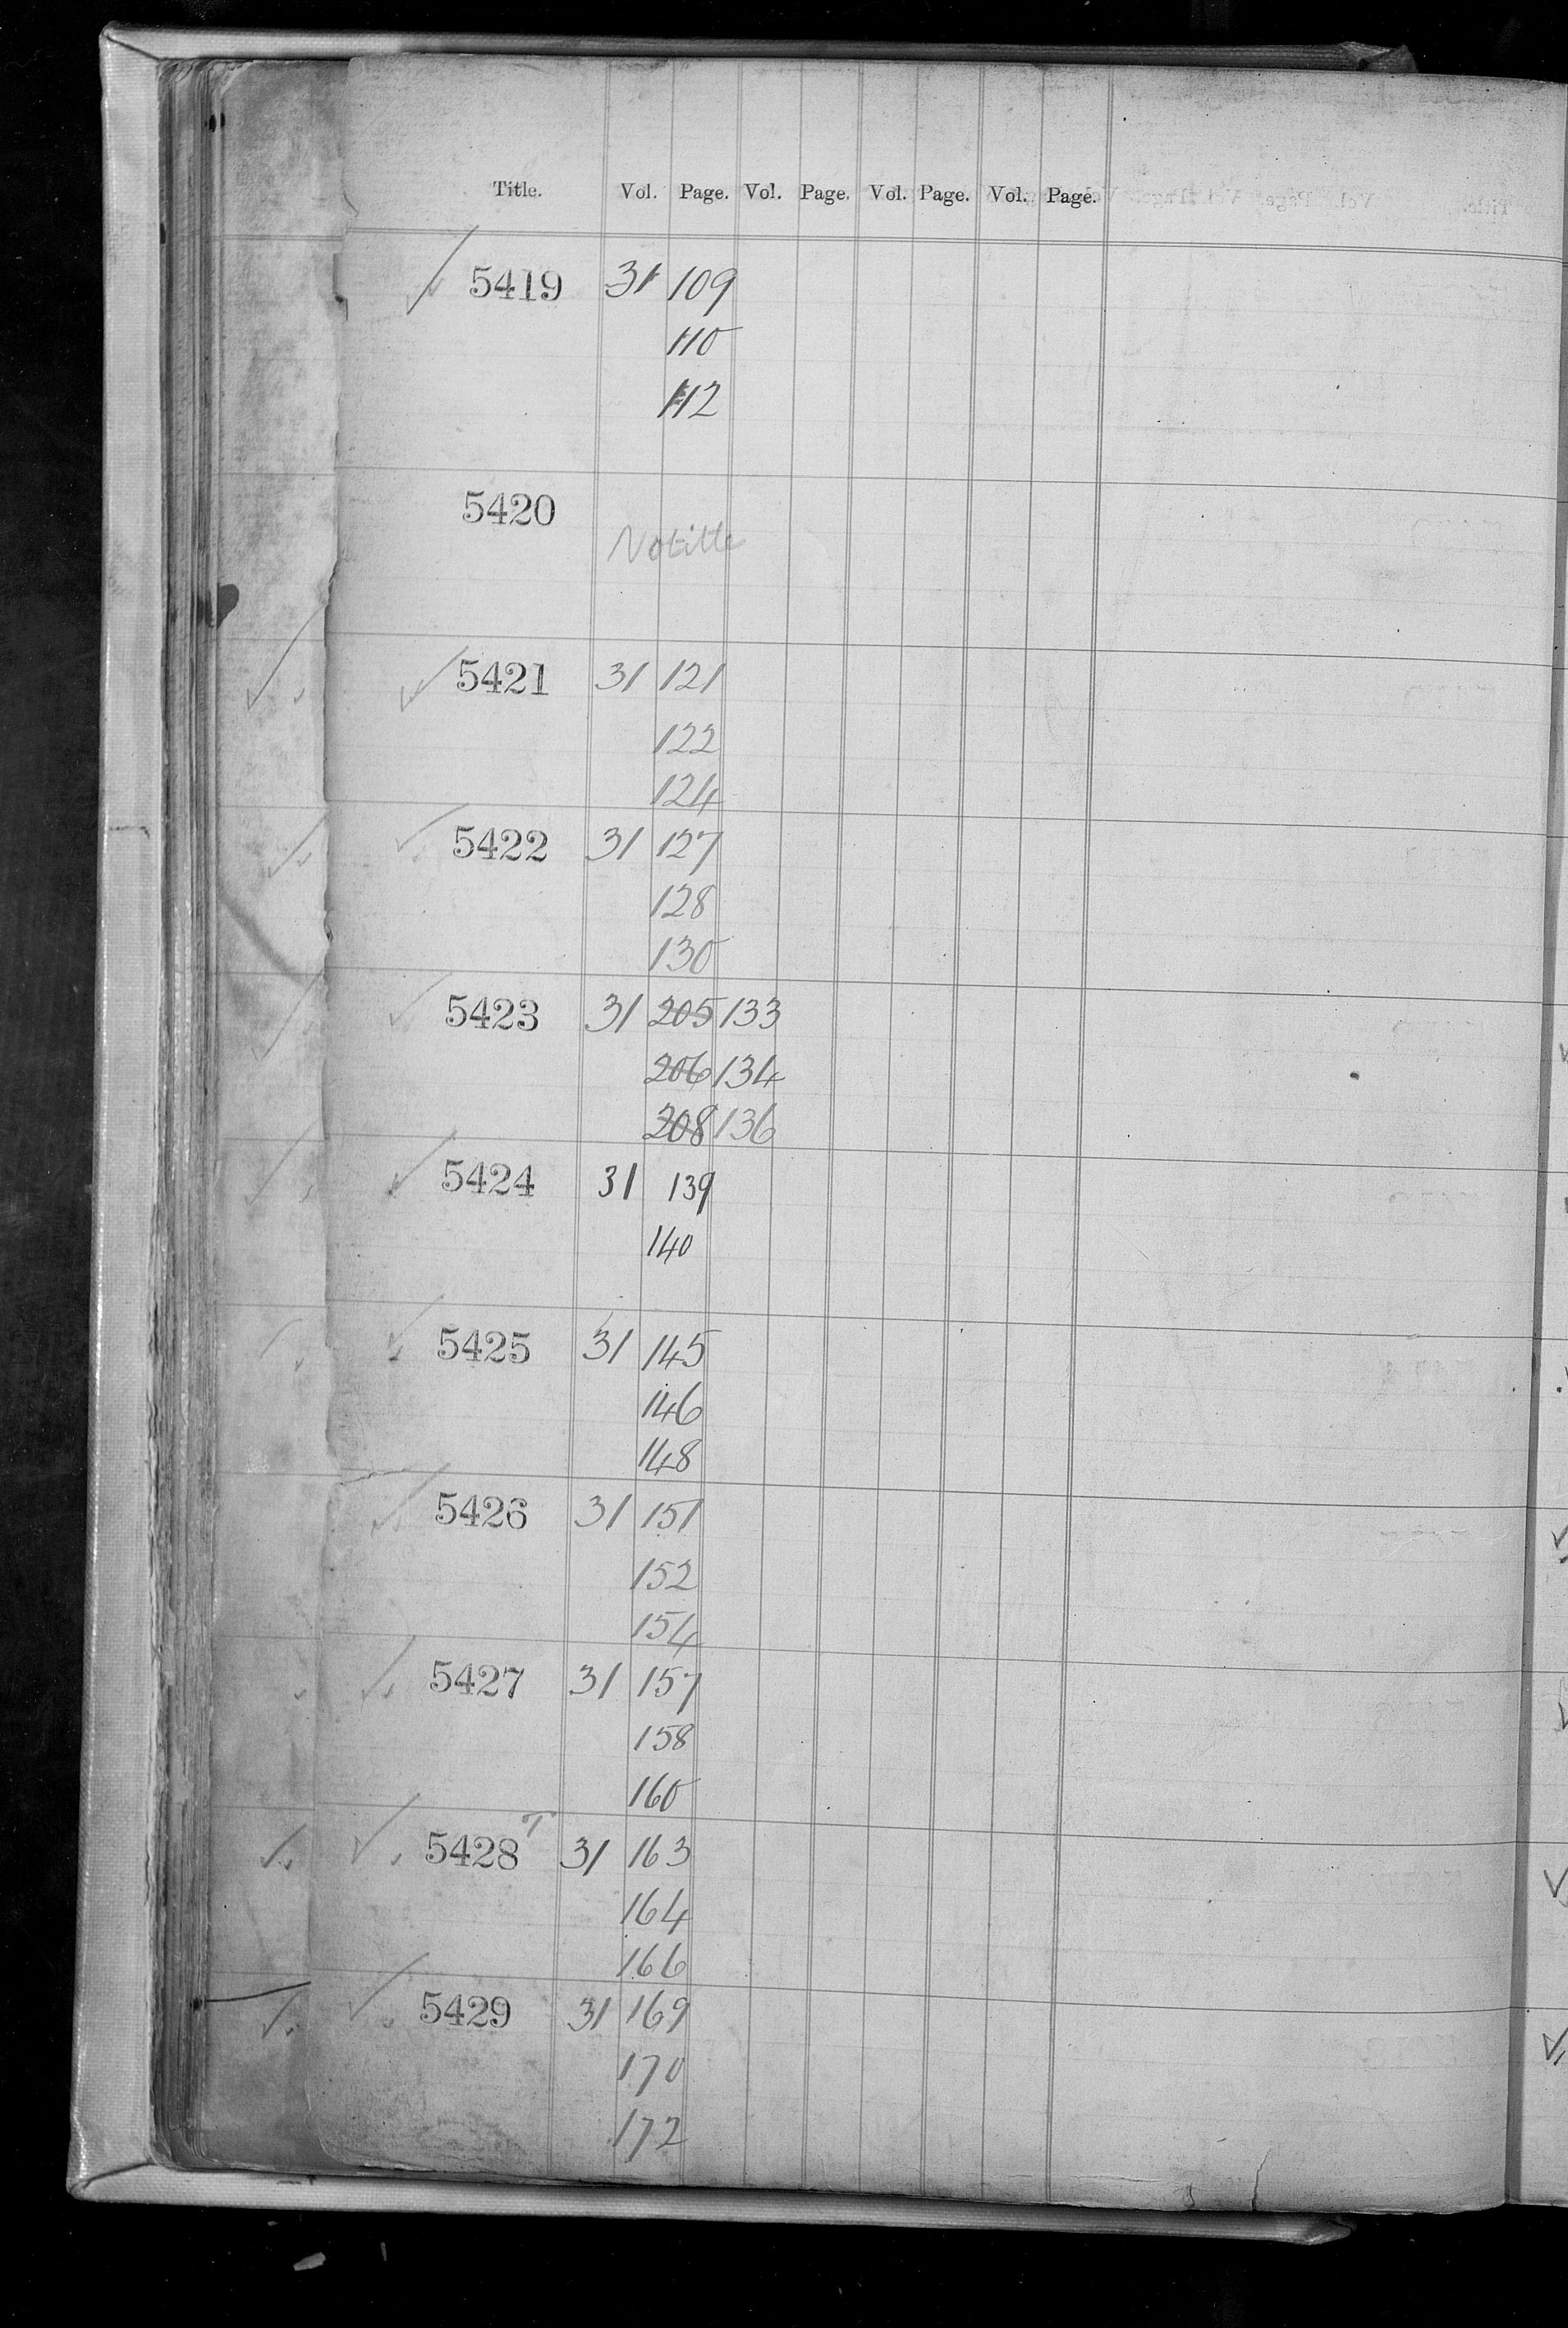 Title. Vol. Page. Vol. Page. Vol. Page. Vol. Page.
5419 31 109
110
112
5420
No title
5421 31 121
122
124
5422 31 127
128
130
5423 31 205 133
206 134
208 136
5424 31 139
140
5425 31 145
146
148
5426 31 151
152
154
5427 31 157
158
160
5428 T 31 163
164
166
5429 31 169
170
172